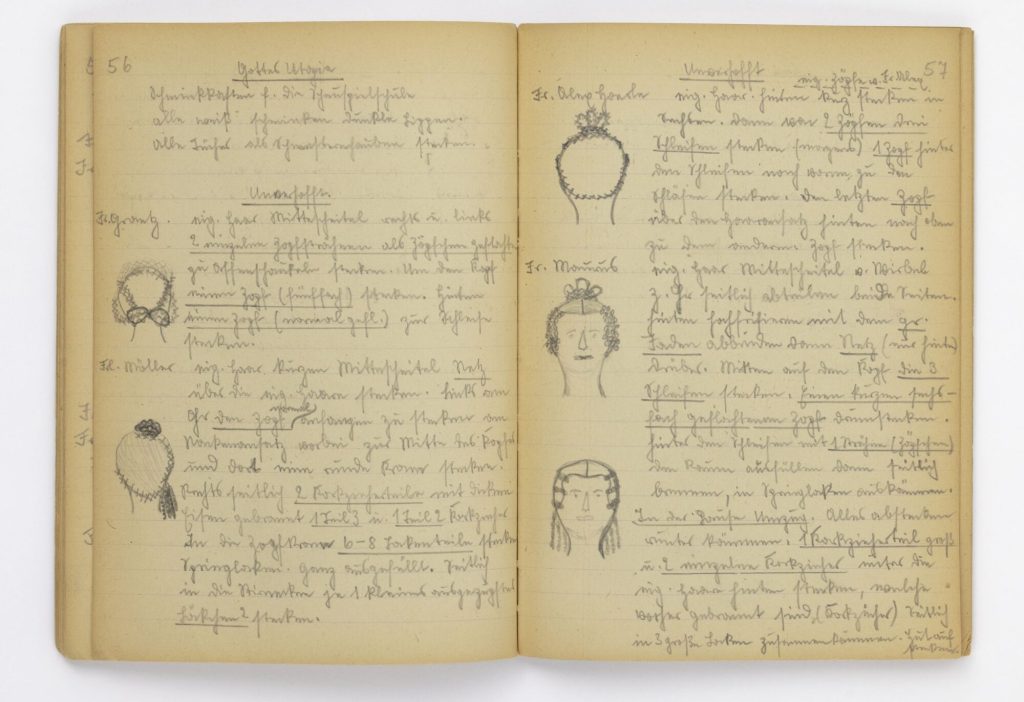 56
Gottes Utopie
Schminkkasten f. die Schauspielschule
alle weiß schminken dunkle Lippen.
Alle Tücher als Schwesternhauben stecken.
Unverhofft.
Fr. Graetz. eig. Haar Mittescheitel rechts u. links
2 einzelne Zopfsträhnen als Zöpfchen geflochten
zu Affenschaukeln stecken. Um den Kopf
einen Zopf (fünffach) stecken. Hinten
einen Zopf (normal gefl.) zur Schleife
stecken.
Frl. Müller eig. Haar kurzen Mittescheitel Netz
über die eig. Haare stecken. Links am
Ohr den Zopf normal anfangen zu stecken am
Nackenansatz vorbei zur Mitte des Kopfes
und dort eine runde Krone stecken.
Rechts seitlich 2 Korkzieherteile mit dickem
Eisen gebrannt 1 Teil 3 u. 1 Teil 2 Korkzieher
In die Zopfkrone 6-8 Lockenteile stecken
Springlocken. Ganz ausgefüllt. Seitlich
in die Stirnecken je 1 kleines ausgezupftes
Löckchen 2 stecken.
57
Unverhofft
eig. Zöpfe v. Fr. Alex
Fr. Alex Haerle eig. Haar hinten kurz stecken in
Sechsen. Dann vor 2 Zöpfen drei
Schleifen stecken (morgens) 1 Zopf hinter
den Schleifen nach vorne, zu den
Schläfen stecken. Den letzten Zopf
über den Haaransatz hinten nach oben
zu dem anderen Zopf stecken.
Fr. Maurus eig. Haar Mittescheitel v. Wirbel
z. Ohr seitlich abteilen beide Seiten.
hinten mit dem gr.
Faden abbinden dann Netz (nur hinten)
drüber. Mitten auf den Kopf die 3
Schleifen stecken. Einen kurzen sechs-
fach geflochtenen Zopf drumstecken.
hinter den Schleifen mit 1 Strähne (Zöpfchen)
den Raum ausfüllen dann seitlich
brennen, in Springlocken auskämmen.
In der Pause Umzug. Alles abstecken
runter kämmen. 1 Korkzieherteil groß
u. 2 einzelne Korkzieher unter die
eig. Haare hinten stecken, welche
vorher gebrannt sind, (Korkzieher) Seitlich
in 3 große Locken zusammenkämmen. Hut auf
stecken.